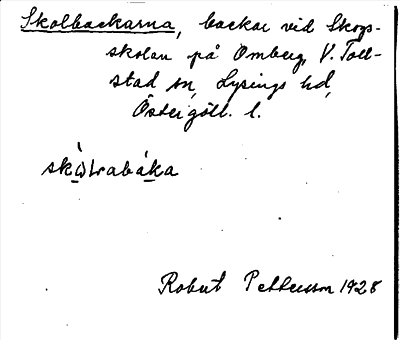 Skolbackarna, backar vid Skogs-
skolan på Omberg, V. Toll-
stad sn, Lysings hd,
Östergötl. l.
Robert Pettersson 1928